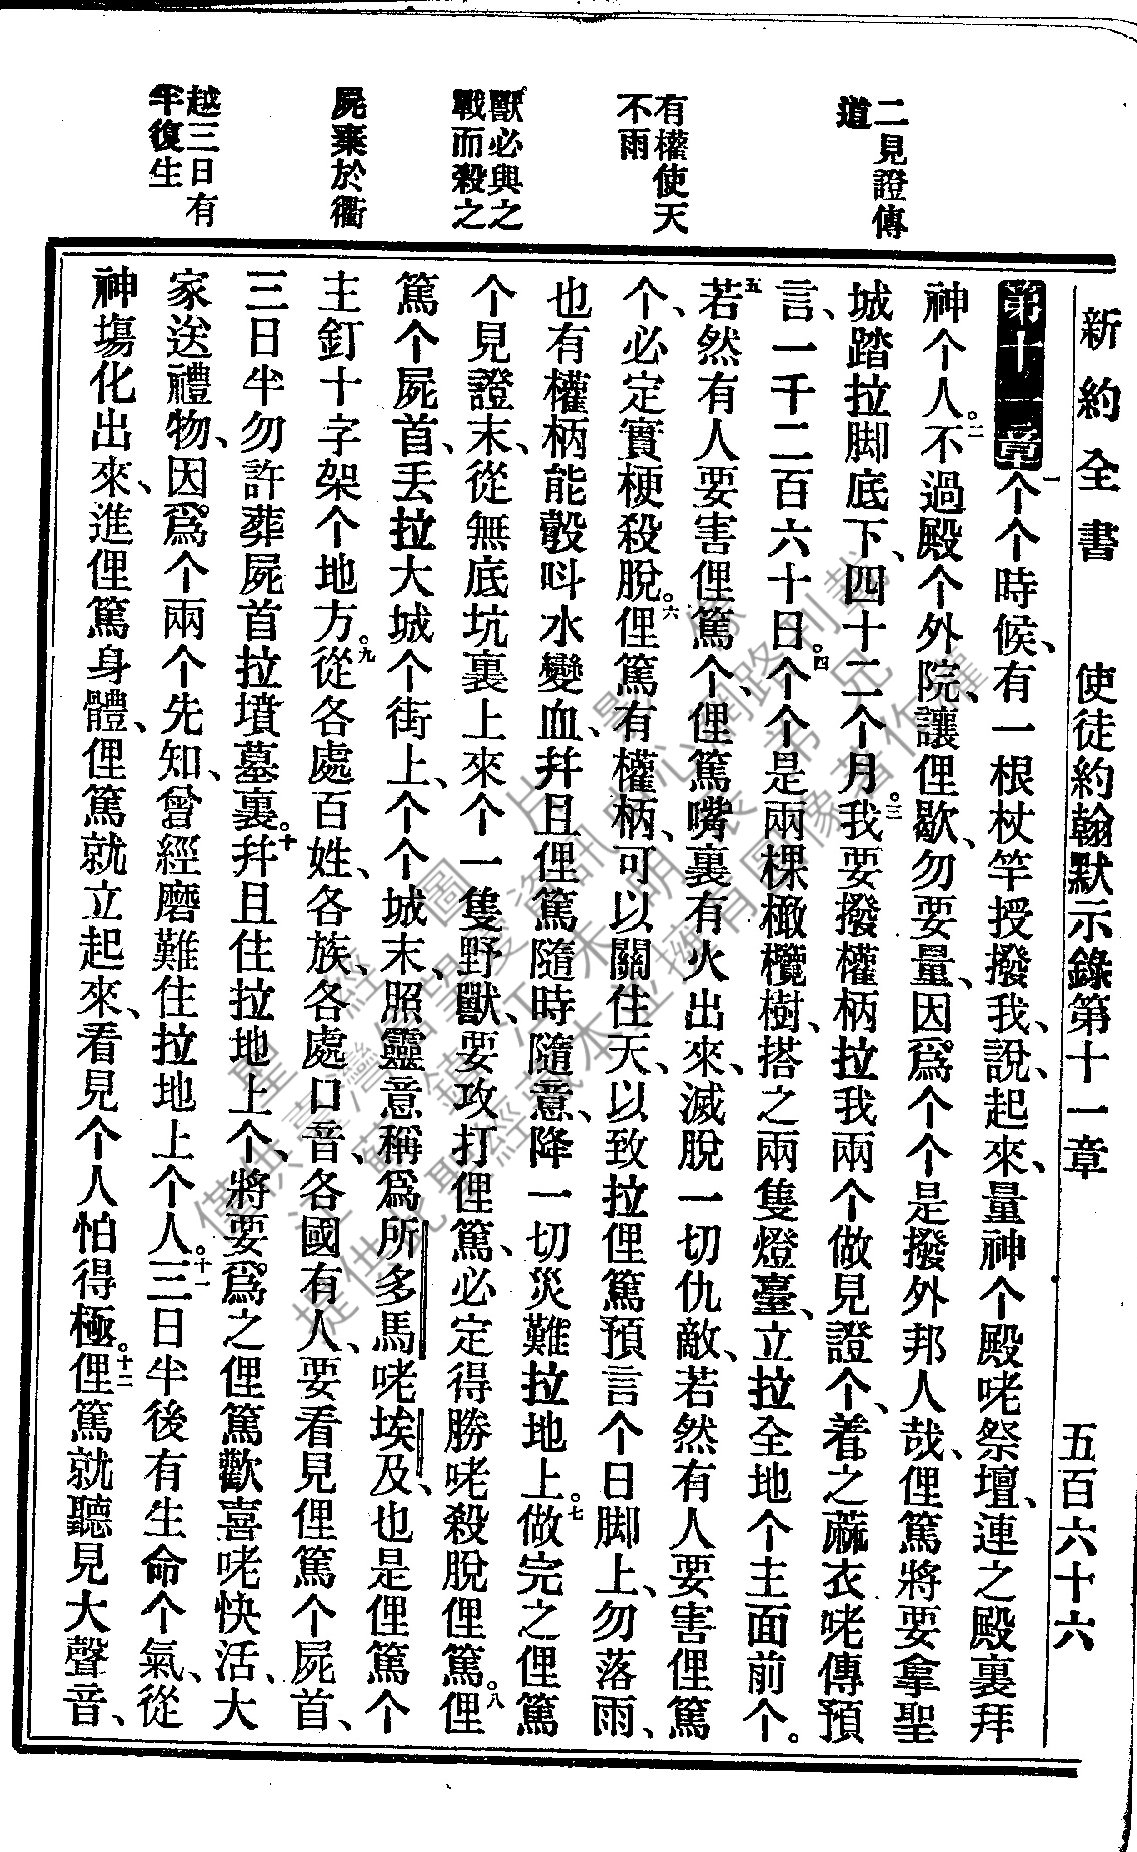 新約全書 使徒約翰默示錄第十一章 五百六十六
二見證傳
道
有權使天
不雨
獸必與之
戰而殺之
屍棄於衢
越三日有
半復生
第十一章 一个个時候、有一根杖竿授撥我、說、起來、量神个殿咾祭壇、連之殿裏拜
神个人。二不過殿个外院、讓俚歇、勿要量、因爲个个是撥外邦人哉、俚篤將要拿聖
城踏拉脚底下、四十二个月。三我要撥權柄拉我兩个做見證个、着之蔴衣咾傳預
言、一千二百六十日。四个个是兩棵橄欖樹、搭之兩隻燈臺、立拉全地个主面前个。
五若然有人要害俚篤个、俚篤嘴裏有火出來、滅脫一切仇敵、若然有人要害俚篤
个、必定實梗殺脫。六俚篤有權柄、可以關住天、以致拉俚篤預言个日脚上、勿落雨、
也有權柄能彀呌水變血、幷且俚篤隨時隨意、降一切災難拉地上。七做完之俚篤
个見證末、從無底坑裏上來个一隻野獸、要攻打俚篤、必定得勝咾殺脫俚篤。八俚
篤个屍首、丟拉大城个街上、个个城末、照靈意稱爲所多馬咾埃及、也是俚篤个
主釘十字架个地方。九從各處百姓、各族、各處口音、各國有人、要看見俚篤个屍首、
三日半勿許葬屍首拉墳墓裏。十幷且住拉地上个、將要爲之俚篤歡喜咾快活、大
家送禮物、因爲个兩个先知、曾經磨難住拉地上个人。十一三日半後有生命个氣、從
神塲化出來、進俚篤身體、俚篤就立起來、看見个人怕得極。十二俚篤就聽見大聲音、